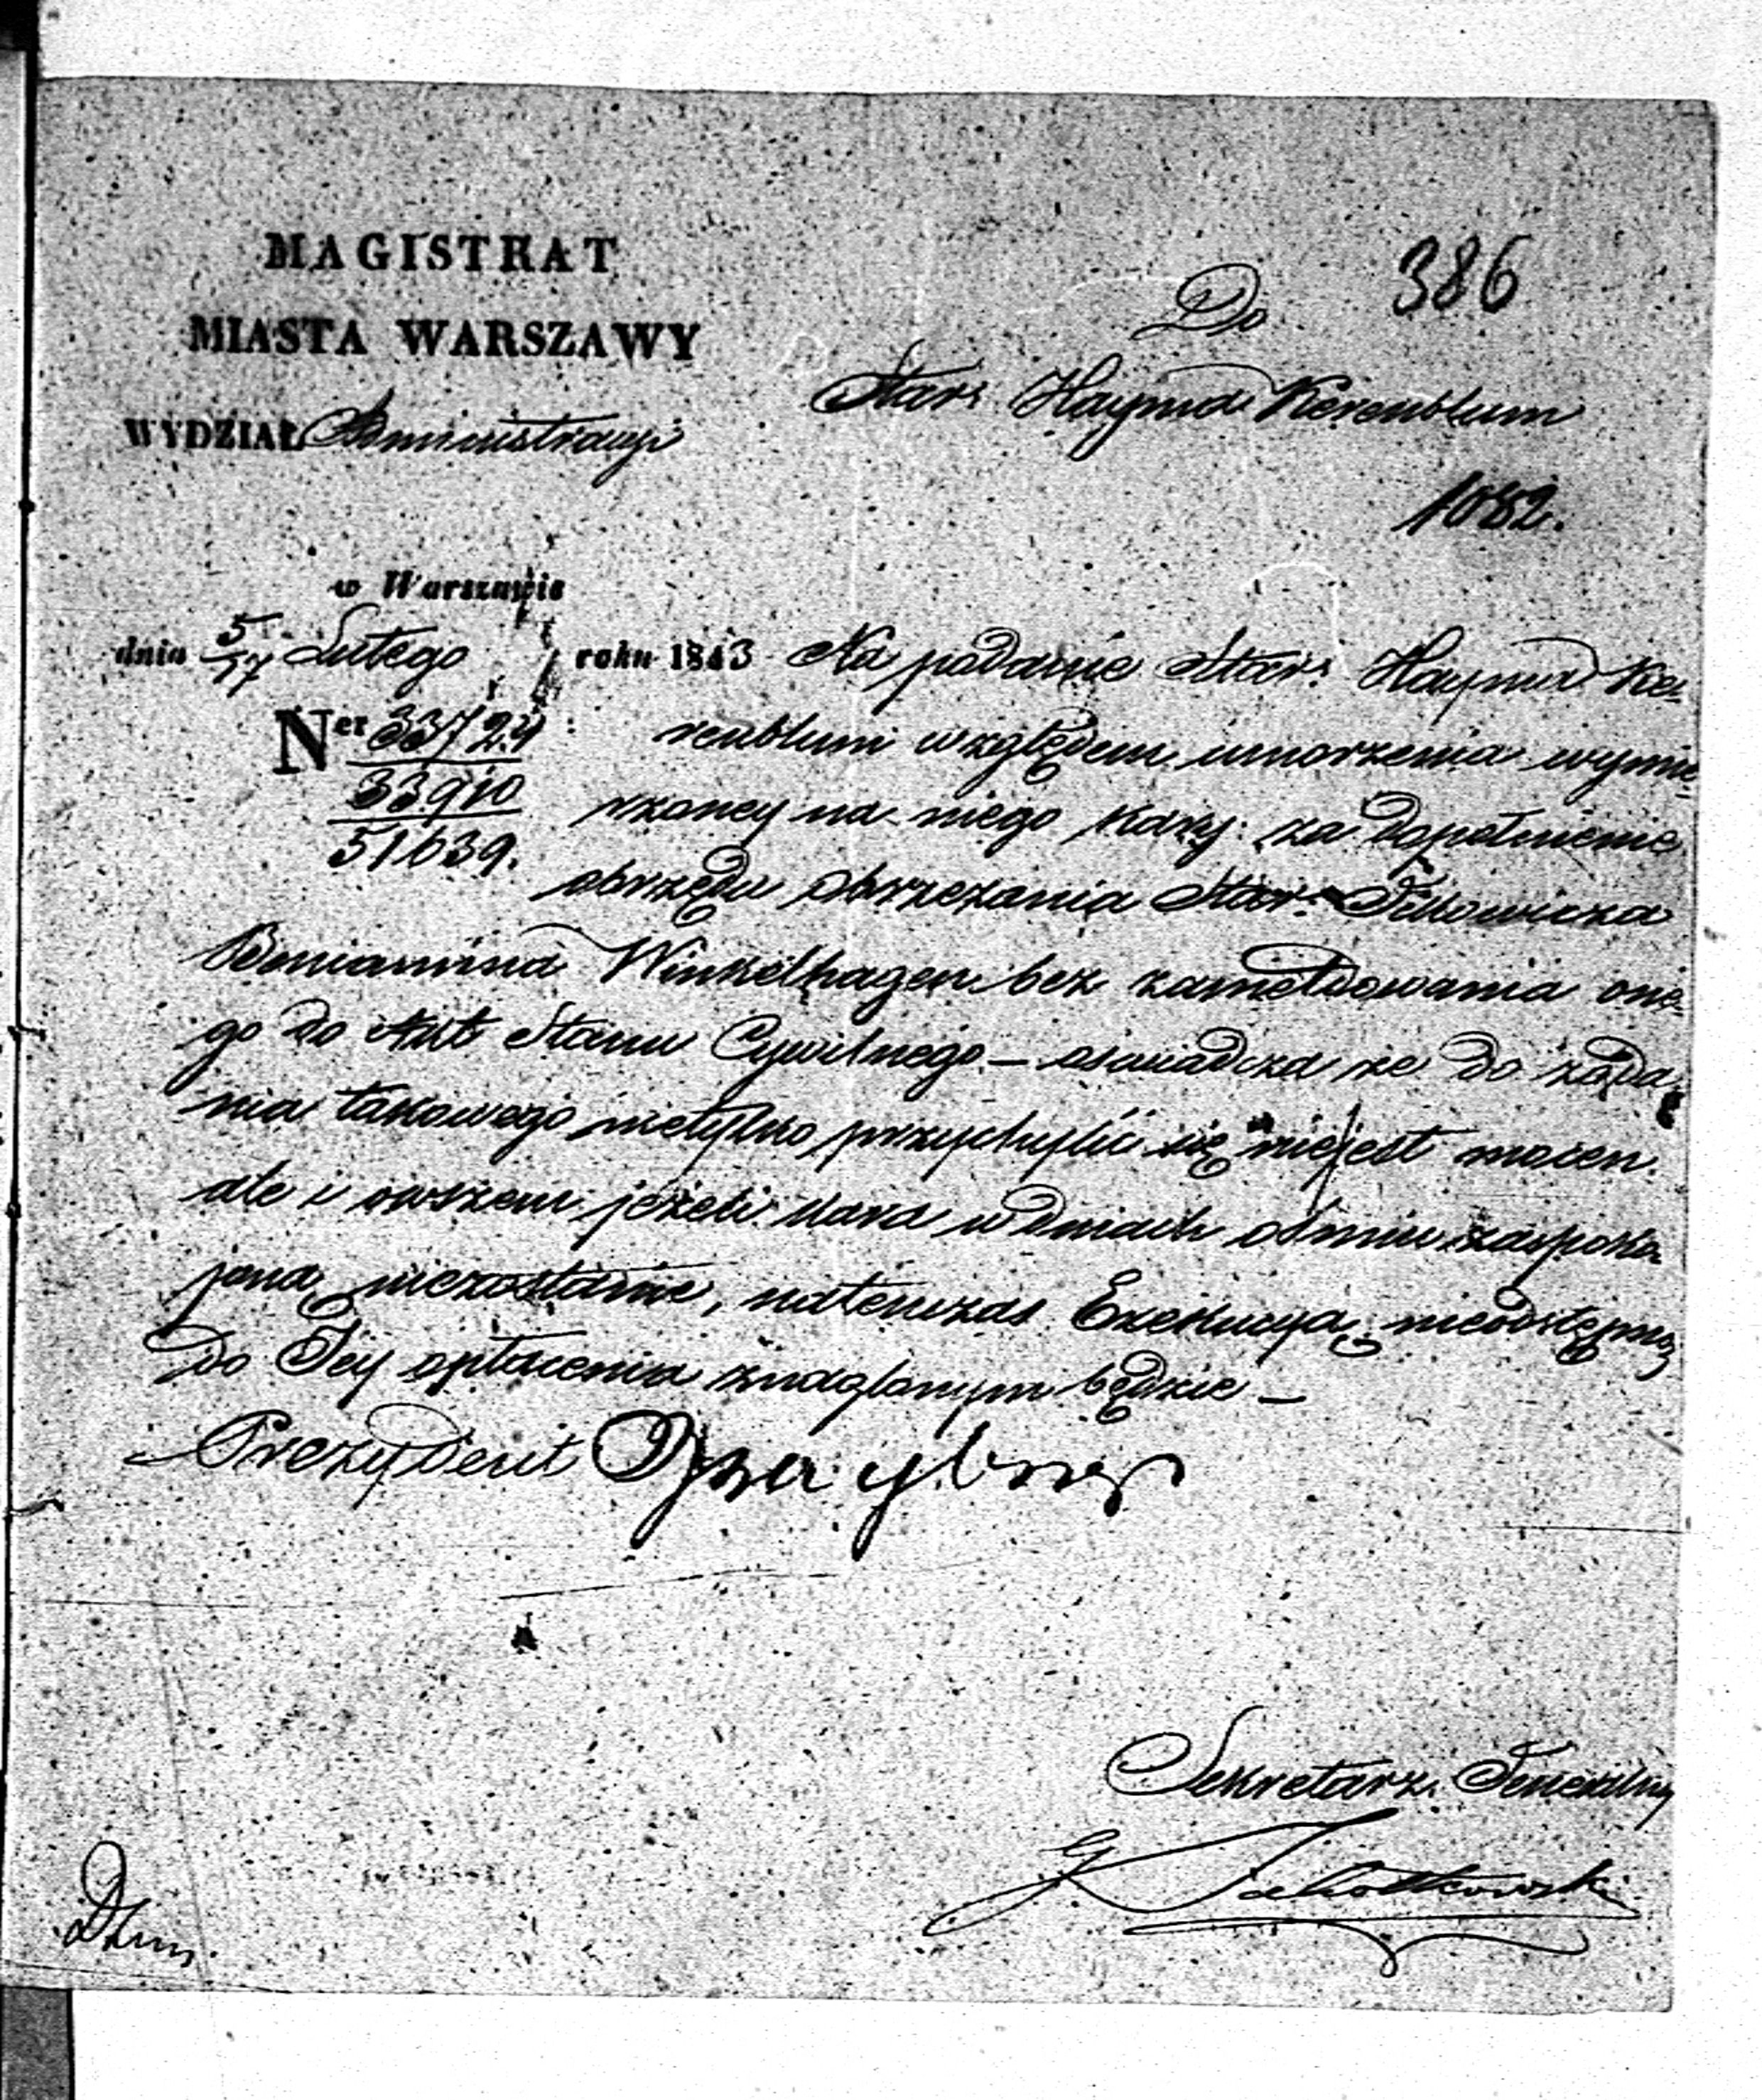 386
MAGISTRAT
MIASTA WARSZAWY
WYDZIAŁ Administracyi
Do
Star: Hayma Kerenblum
1082.
w Warszawie
dnia 5/17 Lutego roku 1843
Ner 33724
33910
51639.
Na podanie Star: Hayma Ke-
renblum względem umorzenia wymie-
rzoney na niego kary za dopełnienie
obrzędu obrzezania Star:
Beniamina Winkelhagen bez zameldowania one-
go do Akt Stanu Cywilnego – oswiadcza że do żąda-
nia takowego nietylko przychylić się niejest mocen
ale i owszem jeżeli kara w dniach ośmiu zaspoko-
joną niezostanie, natenczas Exekucyą nieodstępną
do Jey opłacenia znaglonym będzie –
Prezydent
Sekretarz Generalny